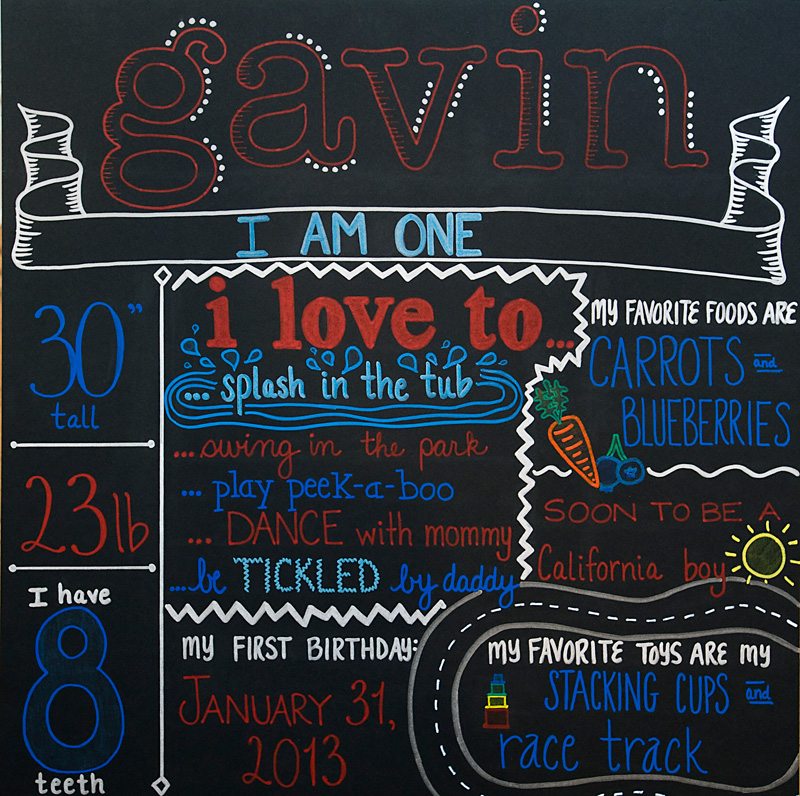 gavin
I AM ONE
30”
tall
23lb
I have
8
teeth
i love to...
... splash in the tub
...swing in the park
... play peek-a-boo
... DANCE with mommy
...be TICKLED by daddy
MY FIRST BIRTHDAY:
JANUARY 31,
2013
MY FAVORITE FOODS ARE
CARROTS and
BLUEBERRIES
SOON TO BE A
California boy
MY FAVORITE TOYS ARE MY
STACKING CUPS and
race track